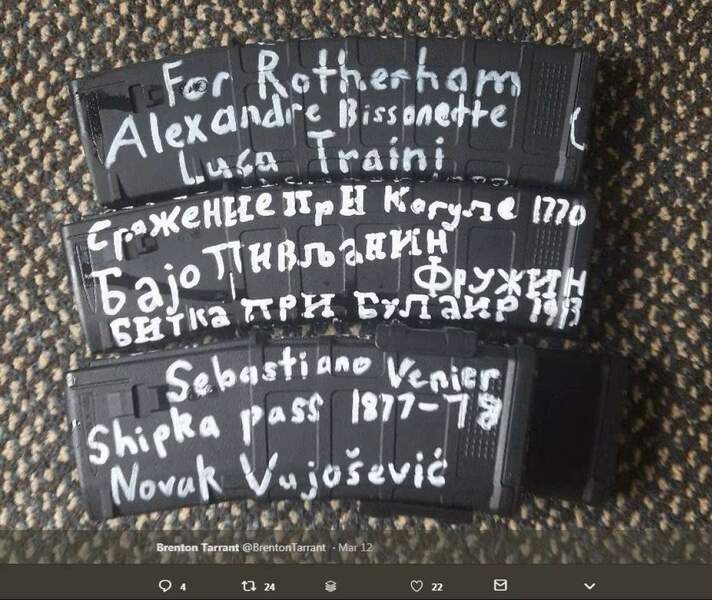 For Rotherham
Alexandre Bissonette
Luca Traini
Сражение при Кагуле 1770
Бајо Пивљанин
Фружин
Битка при Булаир 1913
Sebastiano Venier
Shipka pass 1877-78
Novak Vujošević
Brenton Tarrant @BrentonTarrant · Mar 12
4 24 22